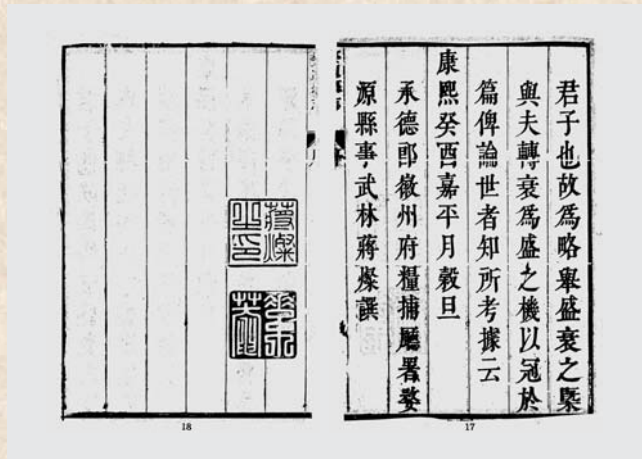 君子也故為略舉盛衰之槩
與夫轉衰為盛之機以冠於
篇俾論世者知所考據云
康熙癸酉嘉平月穀旦
承德郎徽州府糧捕廳署婺
源縣事武林蔣燦譔
17
蔣燦之印
18